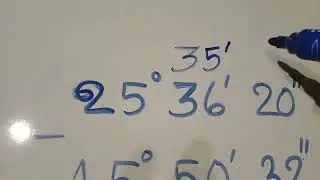 35'
25° 36' 20"
— 15° 50' 32"